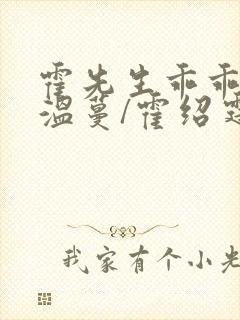 霍先生乖乖
温蔓/霍绍
我家有个小